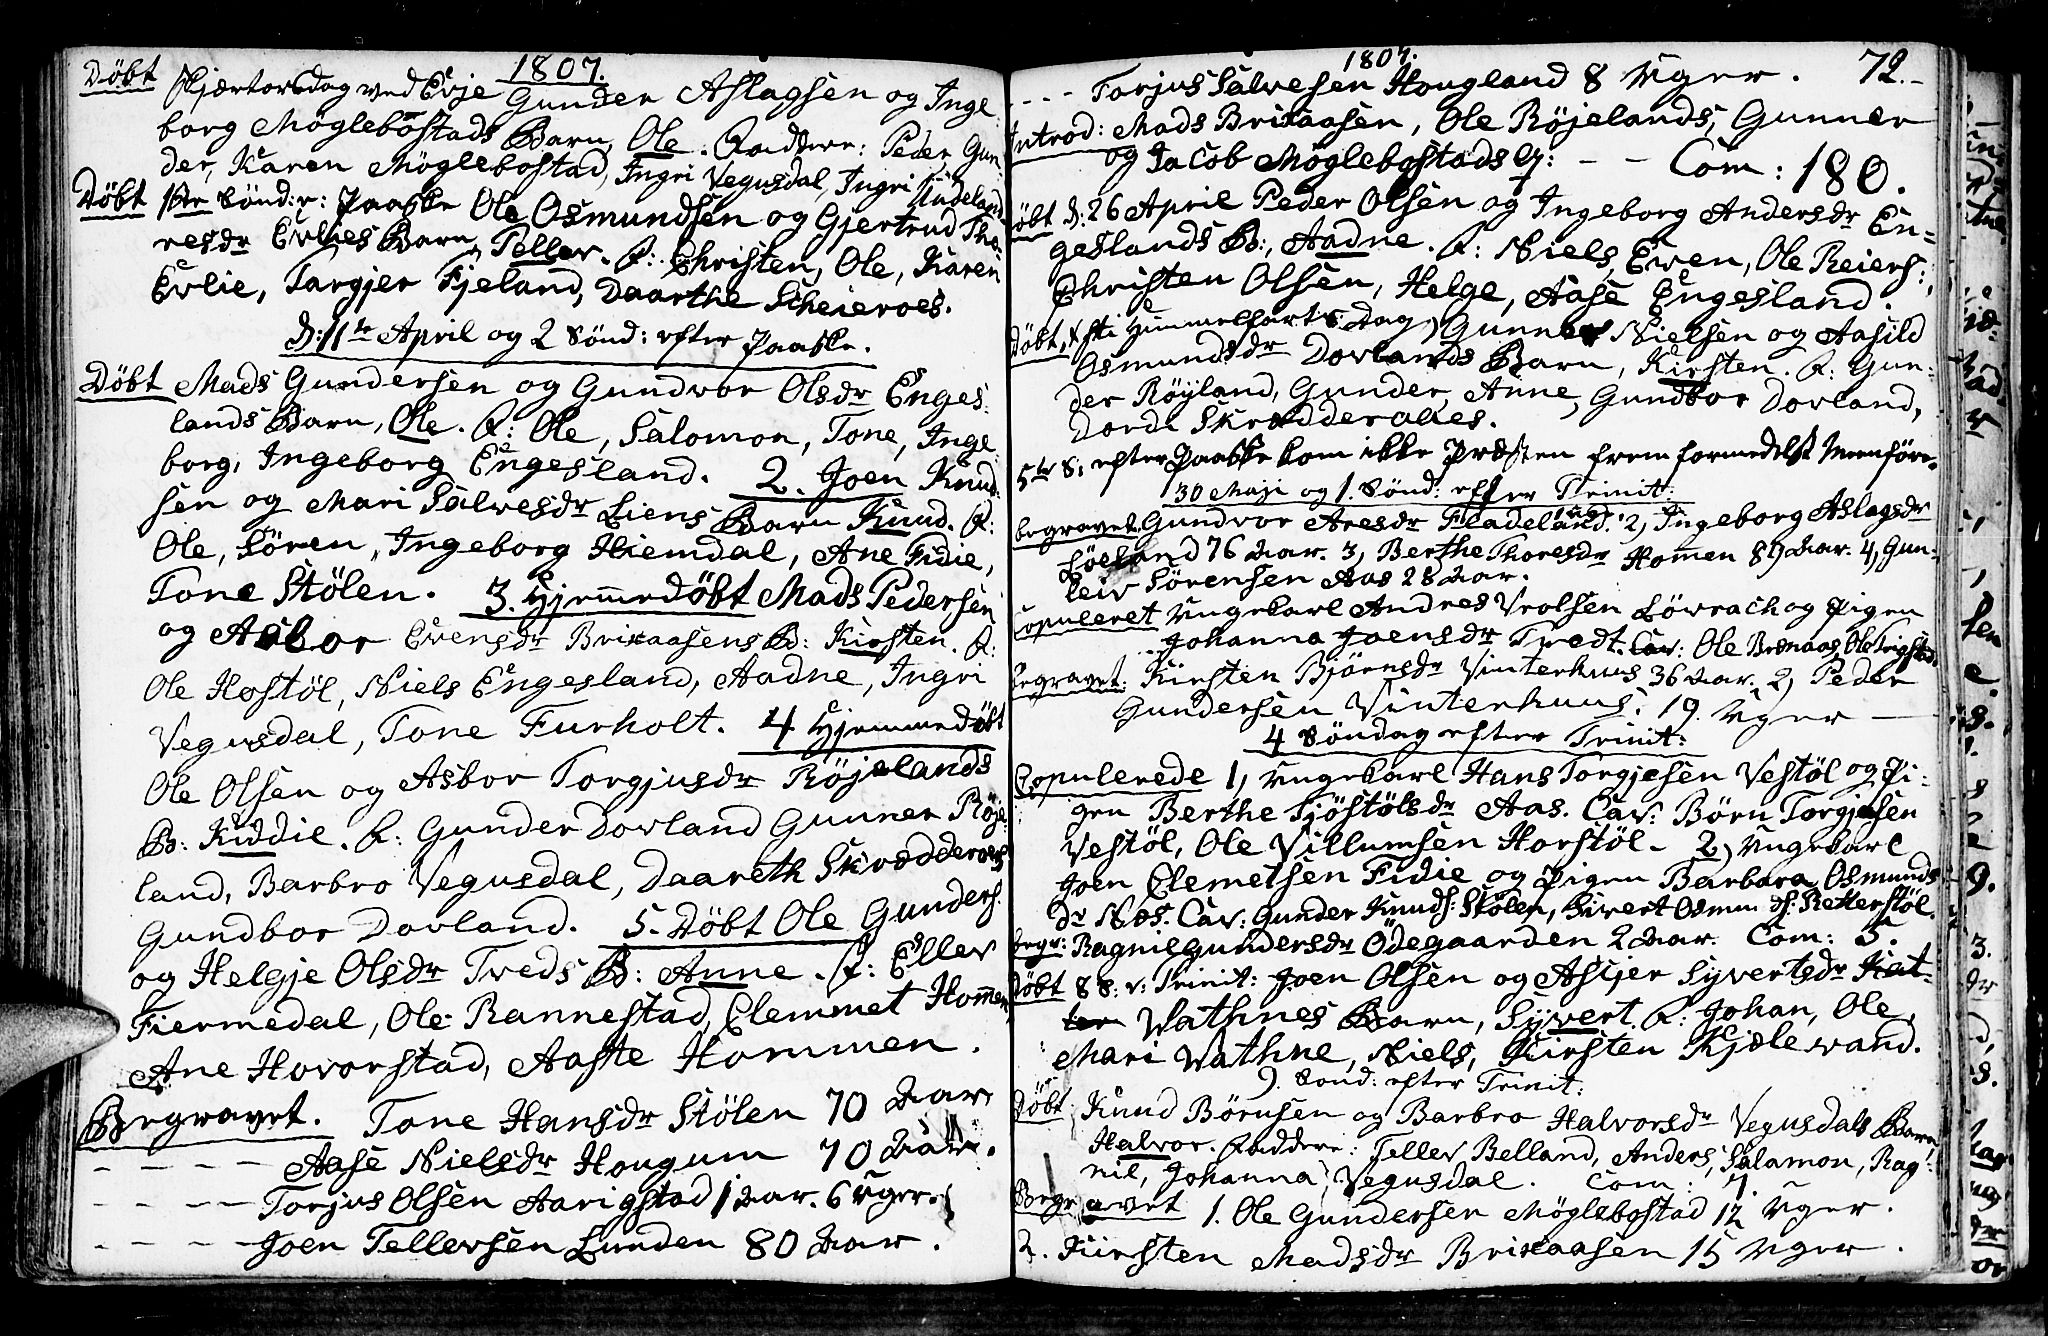 1807.
Döbt Skjærtorsdag ved Evje Gunder Aslagsen og Inge
borg Möglebostads Barn, Ole. Faddere: Peder Gun-
der, Karen Möglebostad, Ingri Vegusdal, Ingri
Döbt 1ste Sönd: e: Paaske Ole Osmundsen og Gjertrud Tho-
resdr Evlies Barn, Tellev. F: Christen, Ole, Karen
Evlie, Targjer Fjeland, Daarthe Scheieroes.
D: 11te April og 2 Sönd: efter Paaske.
Döbt Mads Gundersen og Gundvor Olsdr Enges:
lands Barn, Ole. F: Ole, Salomon, Tone, Inge-
borg, Ingeborg Engesland. 2. Joen Knud-
sen og Mari Salvesdr Liens Barn Knud. F:
Ole, Sören, Ingeborg Hiemdal, Ane Fidie,
Tone Stölen. 3. Hjemmedöbt Mads Pedersen
og Asbor Evensdr Brixaasens B: Kirsten. F:
Ole Hostöl, Niels Engesland, Aadne, Ingri
Vegusdal, Tone Furholt. 4. Hjemmedöbt
Ole Olsen og Asbor Torgjusdr Röjelands
B: Kiddie. F: Gunder Dovland Gunner Röje-
land, Barbro Vegusdal, Daareth Skrædderoes
Gundbor Dovland. 5. Döbt Ole Gunders:
og Helgje Olsdr Treds B: Anne. F: Ellev
Fiermedal, Ole Rannestad, Clemmet Homen,
Ane Hovorstad, Aaste Hommen.
Begravet. Tone Hansdr Stölen 70 Aar
- - - - Aase Nielsdr Hougum 70 Aar.
- - - - Torjus Olsen Aarigstad 1 Aar. 6 Uger.
- - - - Joen Tellevsen Lunden 80 Aar.
1807. 72.
- - - Torjus Salvesen Hougland 8 Uger.
Introd: Mads Brixaasen, Ole Röjelands, Gunner
og Jacob Möglebostads Q: - - Com: 180.
Döbt D: 26 April Peder Olsen og Ingeborg Andersdr En-
geslands B:, Aadne. F: Niels, Even, Ole Reiers:,
Christen Olsen, Helge, Aase Engesland.
Döbt, Christi Himmelfarts Dag, Gunner Nielsen og Aasild
Osmundsdr Dovlands Barn, Kirsten. F: Gun-
der Röyland, Gunder, Anne, Gundbor Dovland,
Dorde Skrædderoes.
5te S: efter Paaske kom ikke Præsten frem formedelst Meenföre.
30 Maji og 1. Sönd: efter Trinit:
begravet. Gundvor Aresdr Fladeland. 2, Ingeborg Aslagsdr
Löeland 76 Aar. 3, Berthe Thoresdr Homen 89 Aar. 4, Gun-
leiv Sörensen Aas 28 Aar.
Copuleret Ungekarl Andres Vrolsen Lövrach og Pigen
Johanna Joensdr Tredt. Cav: Ole Brenaas,
Begravet: Kirsten Bjørnsdr Vinterhuus 36 Aar. 2, Peder
Gundersen Vinterhuus. 19. Uger -
4 Söndag efter Trinit:
Copulerede 1, Ungekarl Hans Torgjesen Vestöl og Pi-
gen Berthe Siöstölsdr Aas. Cav: Börn Torgjesen
Vestöl, Ole Villumsen Horstöl - 2, Ungekarl
Joen Clemetsen Fidie og Pigen Barbara Osmunds
dr Næs. Cav: Gunder Knuds: Stölen, Sivert Osmunds: Retterstöl.
begr: Ragnil Gundersdr Ödegaarden 2 Aar. Com: 5.
Döbt 8 S: e: Trinit: Joen Olsen og Asljer Syvertsdr Kat-
ten Vathnes Barn, Syvert. F: Johan, Ole,
Mari Vathne, Niels, Kirsten Kjælevand.
9. Sönd: efter Trinit:
Döbt Knud Börnsen og Barbro Halvorsdr Vegusdals Barn
Halvor. Faddere: Tellev Belland, Anders, Salamon, Rag-
nil, Johanna Vegusdal. Com: 7.
Begravet 1. Ole Gundersen Möglebostad 12 Uger.
2. Kirsten Madsdr Brixaasen 15 Uger.